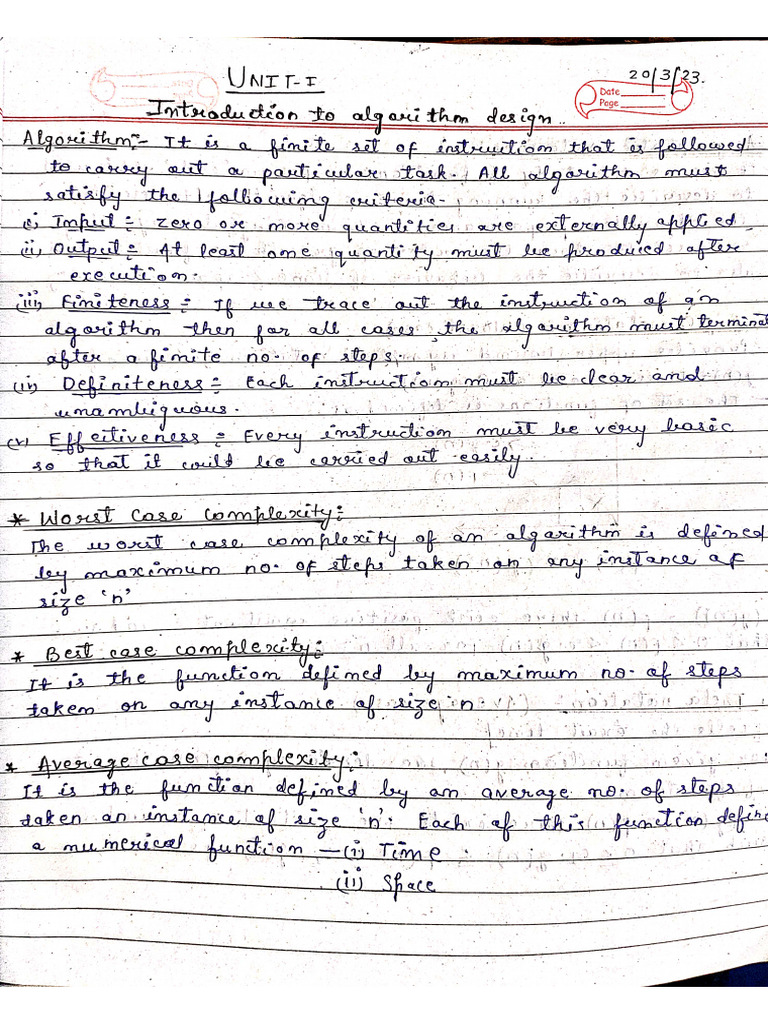 UNIT-I
20/3/23.
Date
Page
Introduction to algorithm design..
Algorithm:- It is a finite set of instruction that is followed
to carry out a particular task. All algorithm must
satisfy the following criteria.
(i) Input = zero or more quantities are externally applied.
(ii) Output = At least one quantity must be produced after
execution.
(iii) Finiteness = If we trace out the instruction of an
algorithm then for all cases, the algorithm must terminat
after a finite no. of steps.
(iv) Definiteness = Each instruction must be clear and
unambiguous.
(v) Effeitiveness = Every instruction must be very basic
so that it could be carried out easily.
* Worst case complexity:
The worst case complexity of an algorithm is defined
by maximum no. of steps taken on any instance of
size 'n'
* Best case complexity:
It is the function defined by maximum no. of steps
taken on any instance of size n.
* Average case complexity:
It is the function defined by an average no. of steps
taken an instance of size 'n'. Each of this function define
a numerical function — (i) Time.
(ii) Space